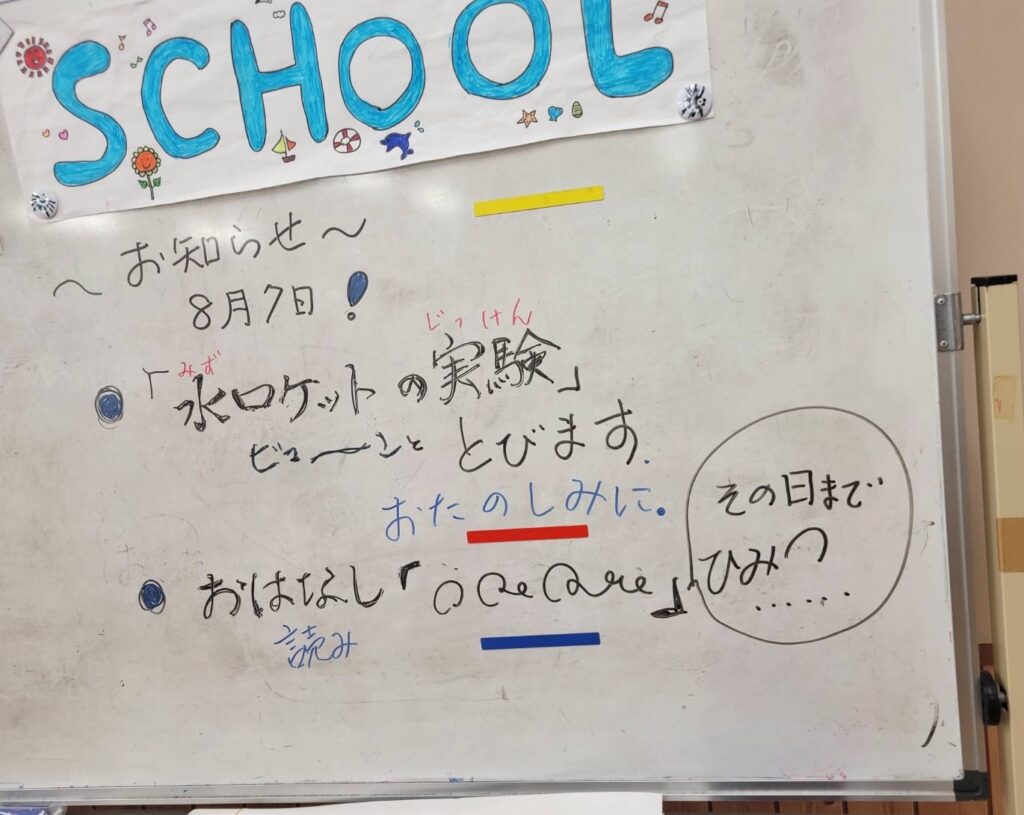 SCHOOL
〜お知らせ〜
8月7日！
じっけん
みず
●「水ロケットの実験」
ビューンと とびます.
おたのしみに。
その日まで
ひみつ
......
●おはなし「
」
読み